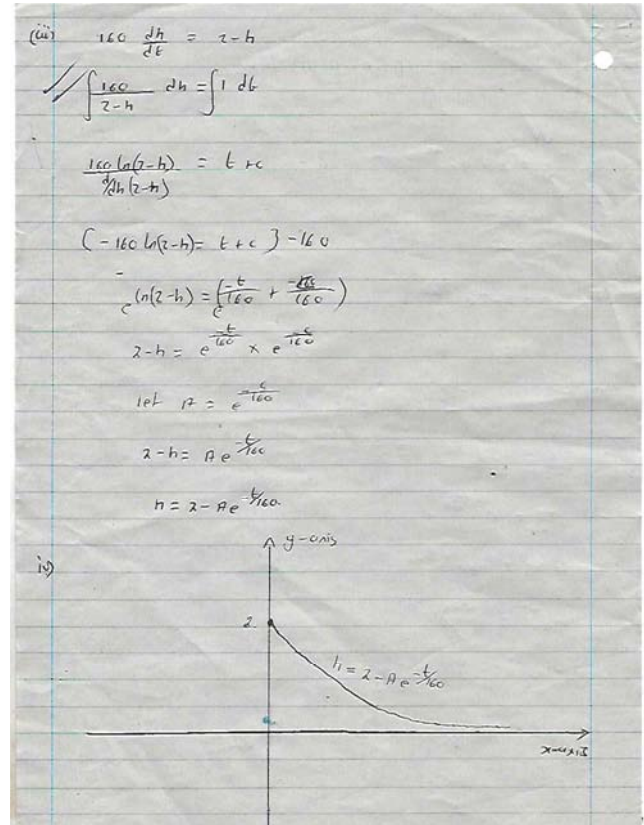 (iii) 160 dh/dt = 2-h
∫ 160/(2-h) dh = ∫ 1 dt
160 ln(2-h) / d/dh(2-h) = t + c
(-160 ln(2-h) = t + c) -160
e^ln(2-h) = e^(-t/160 + -c/160)
2-h = e^(-t/160) × e^(-c/160)
let A = e^(-c/160)
2-h = A e^(-t/160)
h = 2 - A e^(-t/160)
iv)
y-axis
2
h = 2 - A e^(-t/160)
x-axis